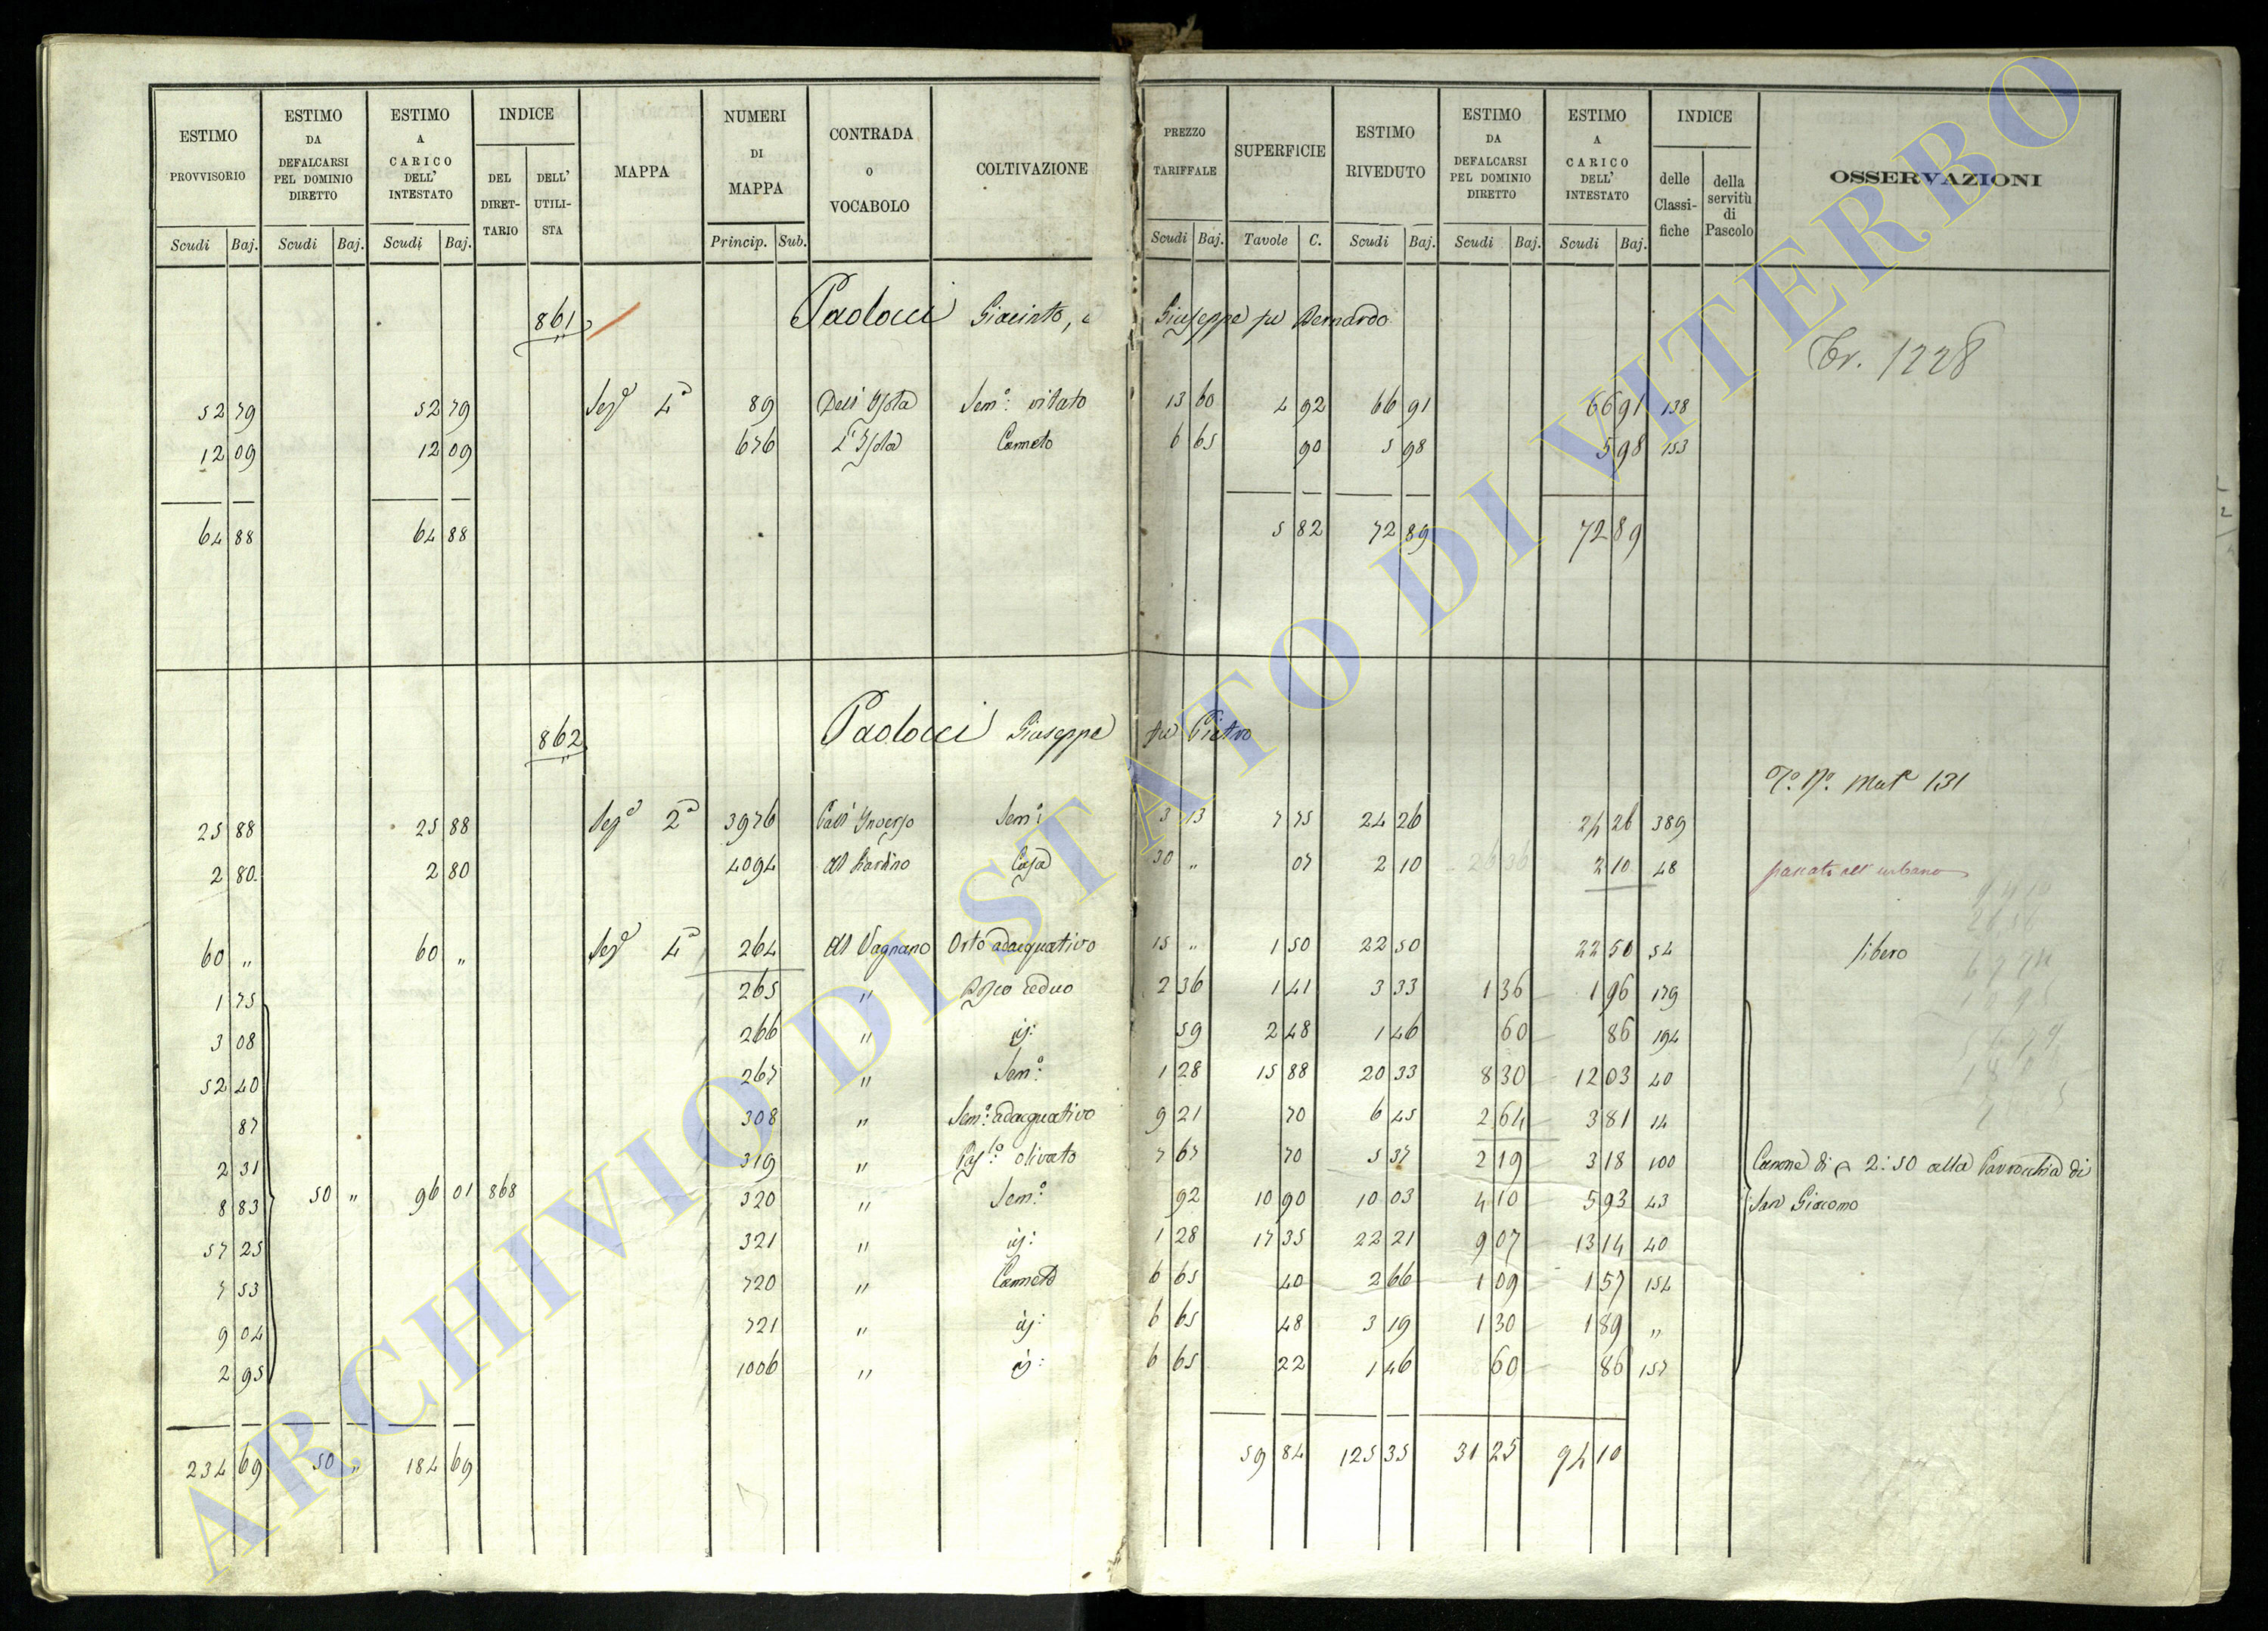 ESTIMO PROVVISORIO Scudi Baj.
ESTIMO DA DEFALCARSI PEL DOMINIO DIRETTO Scudi Baj.
ESTIMO A CARICO DELL' INTESTATO Scudi Baj.
INDICE DEL DIRET-TARIO DELL' UTILI-STA
MAPPA
NUMERI DI MAPPA Princip. Sub.
CONTRADA o VOCABOLO
COLTIVAZIONE
PREZZO TARIFFALE Scudi Baj.
SUPERFICIE Tavole C.
ESTIMO RIVEDUTO Scudi Baj.
ESTIMO DA DEFALCARSI PEL DOMINIO DIRETTO Scudi Baj.
ESTIMO A CARICO DELL' INTESTATO Scudi Baj.
INDICE delle Classi-fiche della servitù di Pascolo
OSSERVAZIONI
861 Paolocci Giacinto, e Giuseppe fu Bernardo
Tr. 1228
52 79 52 79 Sezª 4ª 89 Dell' Isola Semº: vitato 13 60 4 92 66 91 66 91 138
12 09 12 09 676 L'Isola Canneto 6 65 90 5 98 5 98 153
64 88 64 88 5 82 72 89 72 89
862 Paolocci Giuseppe fu Pietro
131
25 88 25 88 Sezª 2ª 3976 Semº: 3 13 7 75 24 26 24 26 389
2 80 2 80 4094 Al Casa 30 " 07 2 10 26 36 2 10 48 passata all' urbano
60 " 60 " Sezª 4ª 264 Al Vagnano Orto adacquativo 15 " 1 50 22 50 22 50 54 libero
1 75 265 " Bosco ceduo 2 36 1 41 3 33 1 36 1 96 179
3 08 266 " id: 59 2 48 1 46 60 86 194
52 40 267 " Semº: 1 28 15 88 20 33 8 30 12 03 40
87 308 " Semº: adacquativo 9 21 70 6 45 2 64 3 81 14
2 31 319 " Pasº: olivato 7 67 70 5 37 2 19 3 18 100 Canone di 2:50 alla Parrocchia di
8 83 50 " 96 01 868 320 " Semº: 92 10 90 10 03 4 10 5 93 43 San Giacomo
57 25 321 " id: 1 28 17 35 22 21 9 07 13 14 40
7 53 720 " Canneto 6 65 40 2 66 1 09 1 57 154
9 04 721 " id: 6 65 48 3 19 1 30 1 89 "
2 95 1006 " id: 6 65 22 1 46 60 86 157
234 69 50 " 184 69 59 84 125 35 31 25 94 10
ARCHIVIO DI STATO DI VITERBO